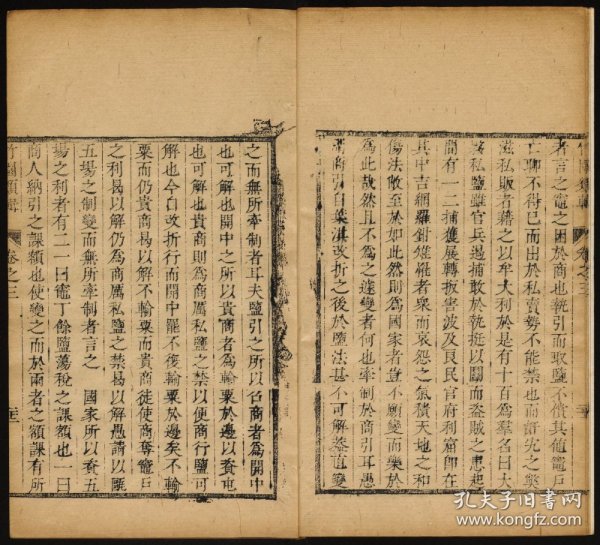 者言之竈之困於商也執引而取鹽不償其值竈戶
亡聊不得已而出於私賣勢不能禁也而許先之獎
滋私販者藉之以牟大利於是有十百爲羣名曰大
私鹽雖官兵過捕敢於執挺以鬬而盜賊之患起
間有一二捕獲展轉扳害波及良民官府利竈即在
其中吉網羅鉗雉羅者衆而哀怨之氣積天地之和
傷法敝至於如此然則爲國家者豈不願變而樂於
爲此哉然且不爲之遽變者何也牽制於商引耳愚
商引自葉淇改折之後於鹽法甚不可解蓋直變
之而無所牽制者耳夫鹽引之所以召商者爲開中
也可解也開中之所以貴商者爲輸粟於邊以養屯
也可解也貴商則爲商厲私鹽之禁以便商行鹽可
解也今自改折行而開中罷不復輸粟於邊矣不輸
粟而仍貴商曷以解不輸粟而貴商徒使商奪竈戶
之利曷以解仍爲商厲私鹽之禁曷以解愚請以團
五場之制變而無所牽制者言之 國家所以養五
場之利者有二一曰竈丁餘鹽蕩稅之課額也一曰
商人納引之課額也使變之而於兩者之額課有所
卷之三